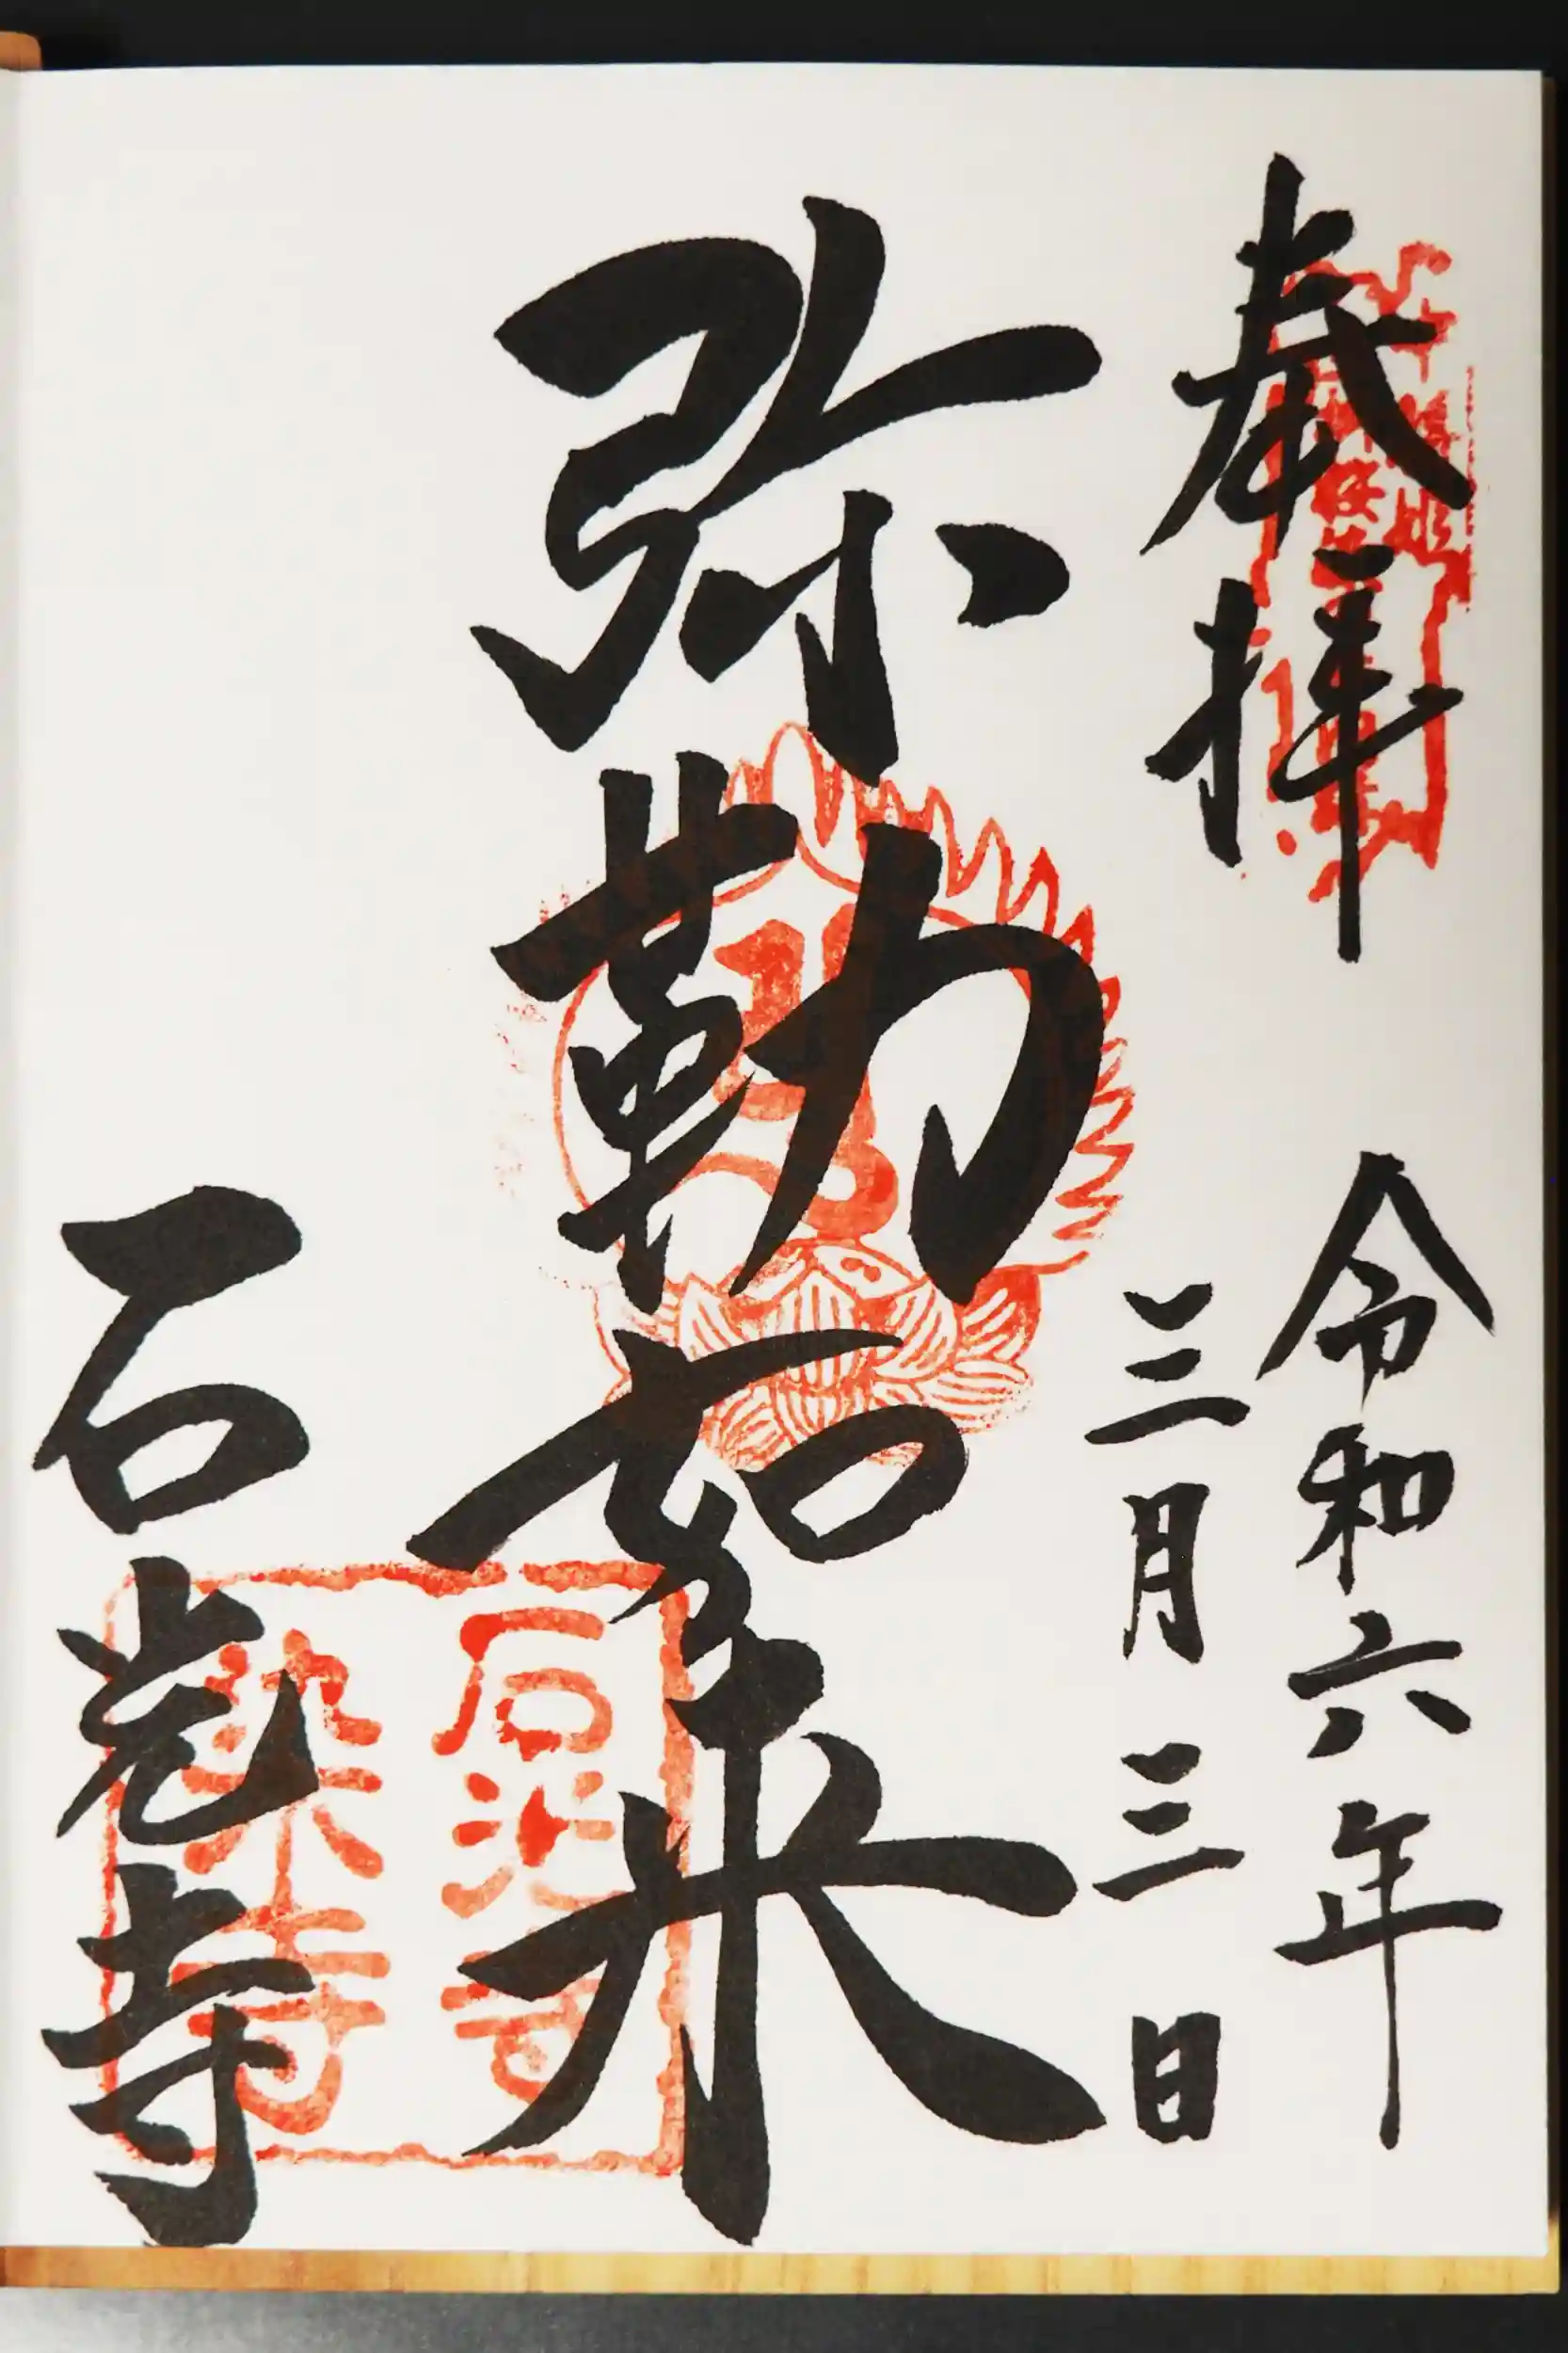 奉拝
令和六年
三月三日
弥勒如来
石光寺
石光寺
染寺